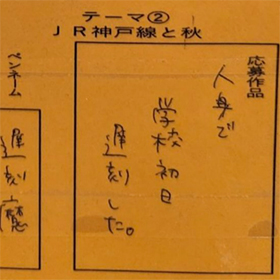 テーマ②
JR神戸線と秋
応募作品
人身で
学校初日
遅刻した。
ペンネーム
遅刻魔